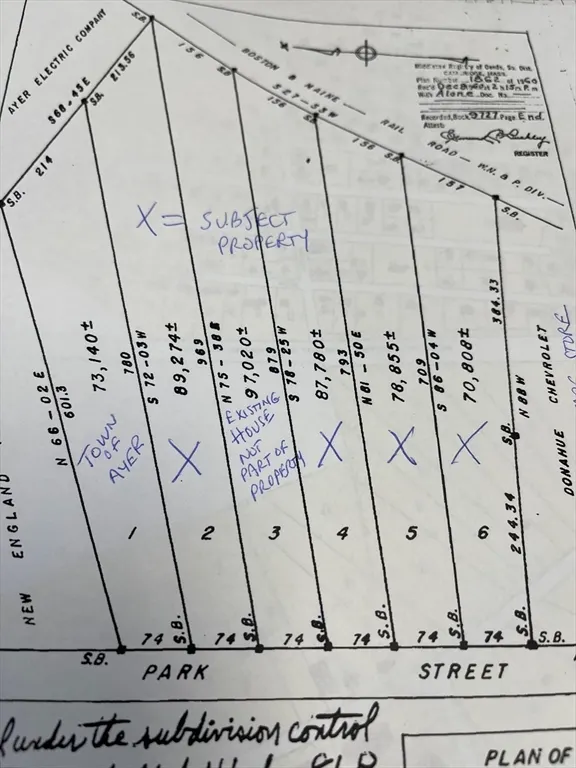 AYER ELECTRIC COMPANY
S.B.
S 68-45 E
213.56
S.B.
214
S.B.
156
S.B.
BOSTON & MAINE — RAIL ROAD — W.N. & P. DIV.—
S 27-33 W
156
S.B.
156
S.B.
157
S.B.
Middlesex Registry of Deeds, So. Dist.
CAMBRIDGE, MASS.
Plan Number 1862 of 1960
Rec'd Dec 8
With Alone Doc. No.
Recorded, Book 9727 Page End
Attest:
REGISTER
X = SUBJECT
PROPERTY
NEW ENGLAND
N 66-02 E
601.3
73,140±
780
S 72-03W
89,274±
969
N 75-38E
97,020±
879
S 78-25W
87,780±
793
N 81-50E
78,855±
709
S 86-04W
70,808±
384.33
N 88W
S.B.
244.34
DONAHUE CHEVROLET
STORE
TOWN
OF
AYER
X
EXISTING
HOUSE
NOT
PART OF
PROPERTY
X
X
X
1
2
3
4
5
6
S.B.
74
S.B.
74
S.B.
74
S.B.
74
S.B.
74
S.B.
74
S.B.
S.B.
PARK STREET
under the subdivision control
PLAN OF